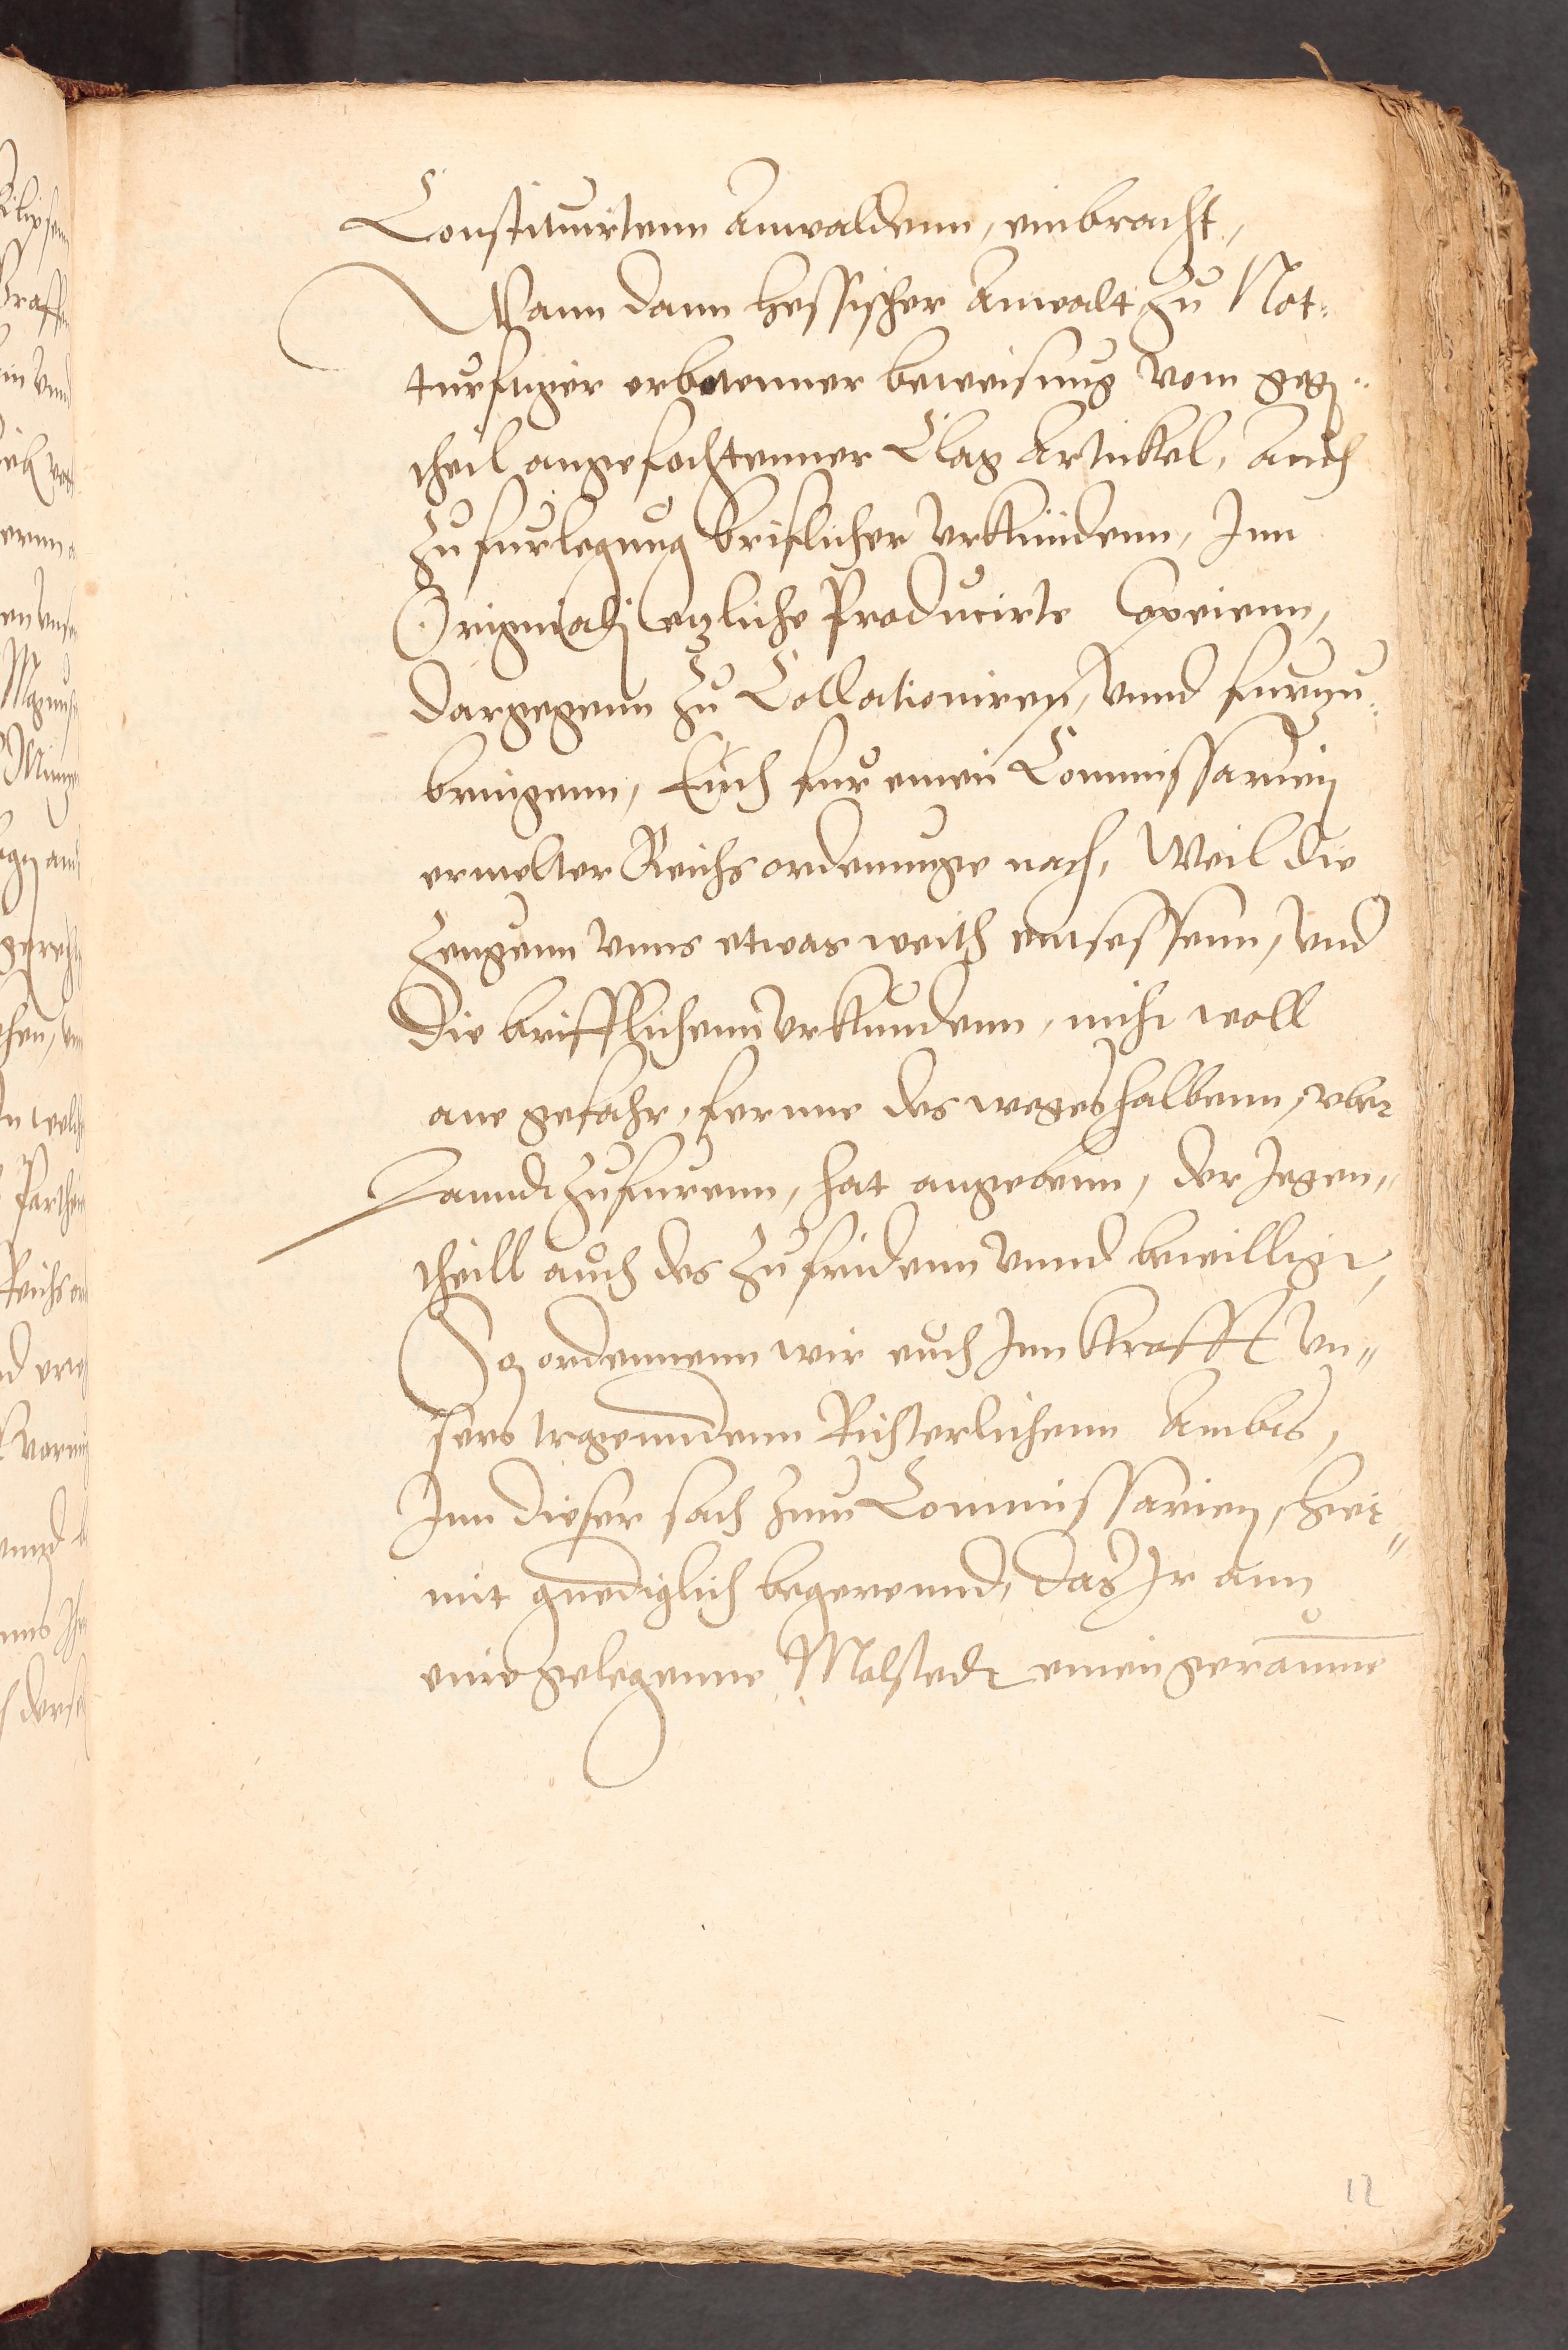 Constituirtenn Anwaldenn, einbracht,
Wann dann hessischer Anwalt zu Not¬
turfftiger erbotenner beweisung vom gegen¬
theil angefochtenner Clag Artickel, Auch
zu furlegung briflicher Vrkundenn, Inn
Originalj etzliche Producirte Copeienn,
dargegenn zu Collationiren, vnnd furzu¬
bringenn, Euch fur einen Commissarien
ermelter Reichs ordenunge nach, Weil die
Zeugenn vnns etwas weith entsessenn, vnd
Die briefflichenn Vrkundenn, nicht woll
ane gefahr, fernne des weges halbenn, vber
Lanndt zufurenn, hat angebenn, der Jegen¬
theill auch des zufridenn vnnd bewilligt,
So ordennenn wir euch Inn krafft vn¬
sers tragenndenn Richterlichenn Ambts,
Inn dieser sach zum Commissarien, hie¬
mit gnediglich begerennd, das Ir ann
eine gelegenne Malstedt einen geraume
12